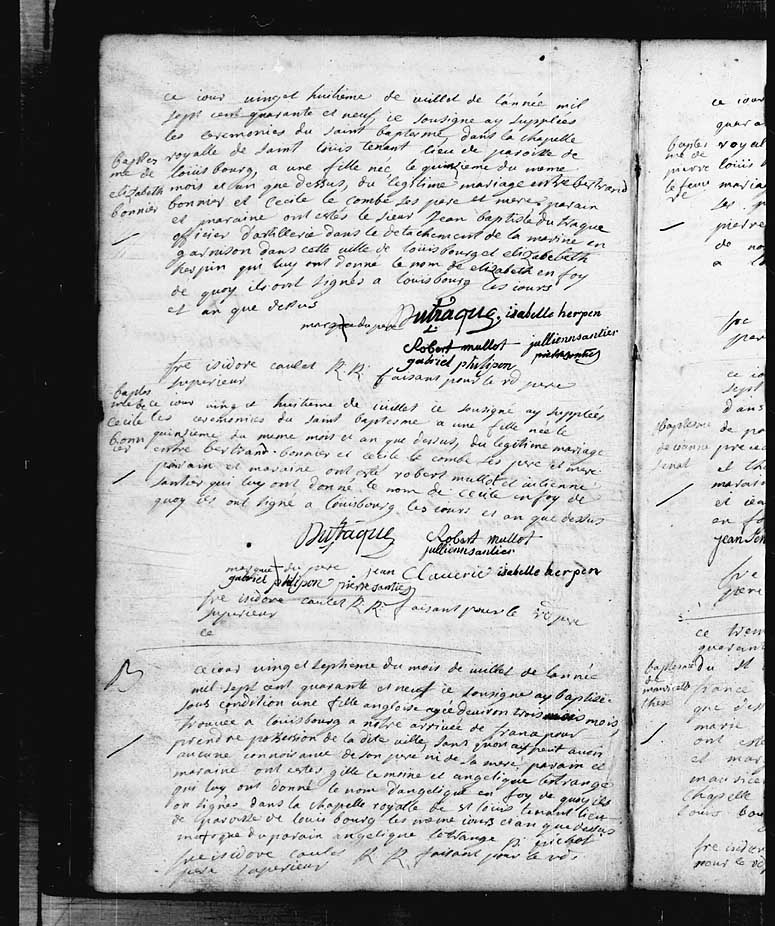 ce iour vinget huitième de iuillet de lànnée mil
sept cent quarante et neuf ie sousigné ay supplées
les ceremonies du saint baptesme, dans la chapelle
royalle de saint louis tenant lieu de paroisse de
louisbourg, a une fille neé le quinsieme du meme
mois et an que dessus, du legitime mariage entre bertrand
bonnier et cecile le combe ses pere et mere, parain
et maraine ont estés le sieur jean baptiste dutraque
officier d'artillerie dans le detachement de la marine en
garnison dans cette ville de louisbourg et elizabeth
herpin qui luy ont donné le nom de elizabeth en foy
de quoy ils ont signés a louisbourg les iours
et an que dessus
baptes
me de
elizabeth
bonnier
marque du pere Dutraque, isabelle herpen
Robert mullot jullienn santier
gabriel philipon pierre santie
fre isidore caulet R. R. faisant pour le rd pere
superieur
baptes
me de
cecile
bonn
ier
ce iour vinget huitieme de iuillet ie sousigné ay supplées
les ceremonies du saint baptesme a une fille neé le
quinsieme du meme mois et an que dessus, du legitime mariage
entre bertrand bonnier et cecile le combe ses pere et mere
parain et maraine ont esté robert mullot et iulienne
santier qui luy ont donné le nom de cecile en foy de
quoy ils ont signé a louisbourg les iours et an que dessus
Dutraque Robert mullot
jullienn santier
marque du pere jean Claverie isabelle herpen
gabriel philipon pierre santies
fre isidore caulet R. R. faisant pour le rd pere
superieur
ce
ce iour vinget septieme du mois de iuillet de lannée
mil sept cent quarante et neuf ie sousigné ay baptisé
sous condition une fille angloise agée d'environ trois mois
trouvée a louisbourg a notre arrivée de france pour
prendre possession de la dite ville, sans quon ayt peut avoir
aucune connoisance de son pere ni de sa mere, parain et
maraine ont estes gille le moine et angelique letrange
qui luy ont donné le nom d'angelique en foy de quoy ils
on signés dans la chapelle royalle de st louis tenant lieu
de paroisse de louisbourg les meme iours et an que dessus
marque du parain angelique letrange P. pichot
fre isidore caulet R. R. faisant pour le rd
pere superieur
ce iour
quara
royal
louis
mariag
baptes
me de
pierre
le feuv
re
pierre
de no
fre
pere
ce io
sept
dans
de pa
baptesme
de ieanne
et th
marain
et iea
en fo
jean
fre
pere
ce tren
quarant
du st
france
que des
marie
ont esté
et mar
baptesme
de
chapelle
louis bou
fre isidor
pour le rd